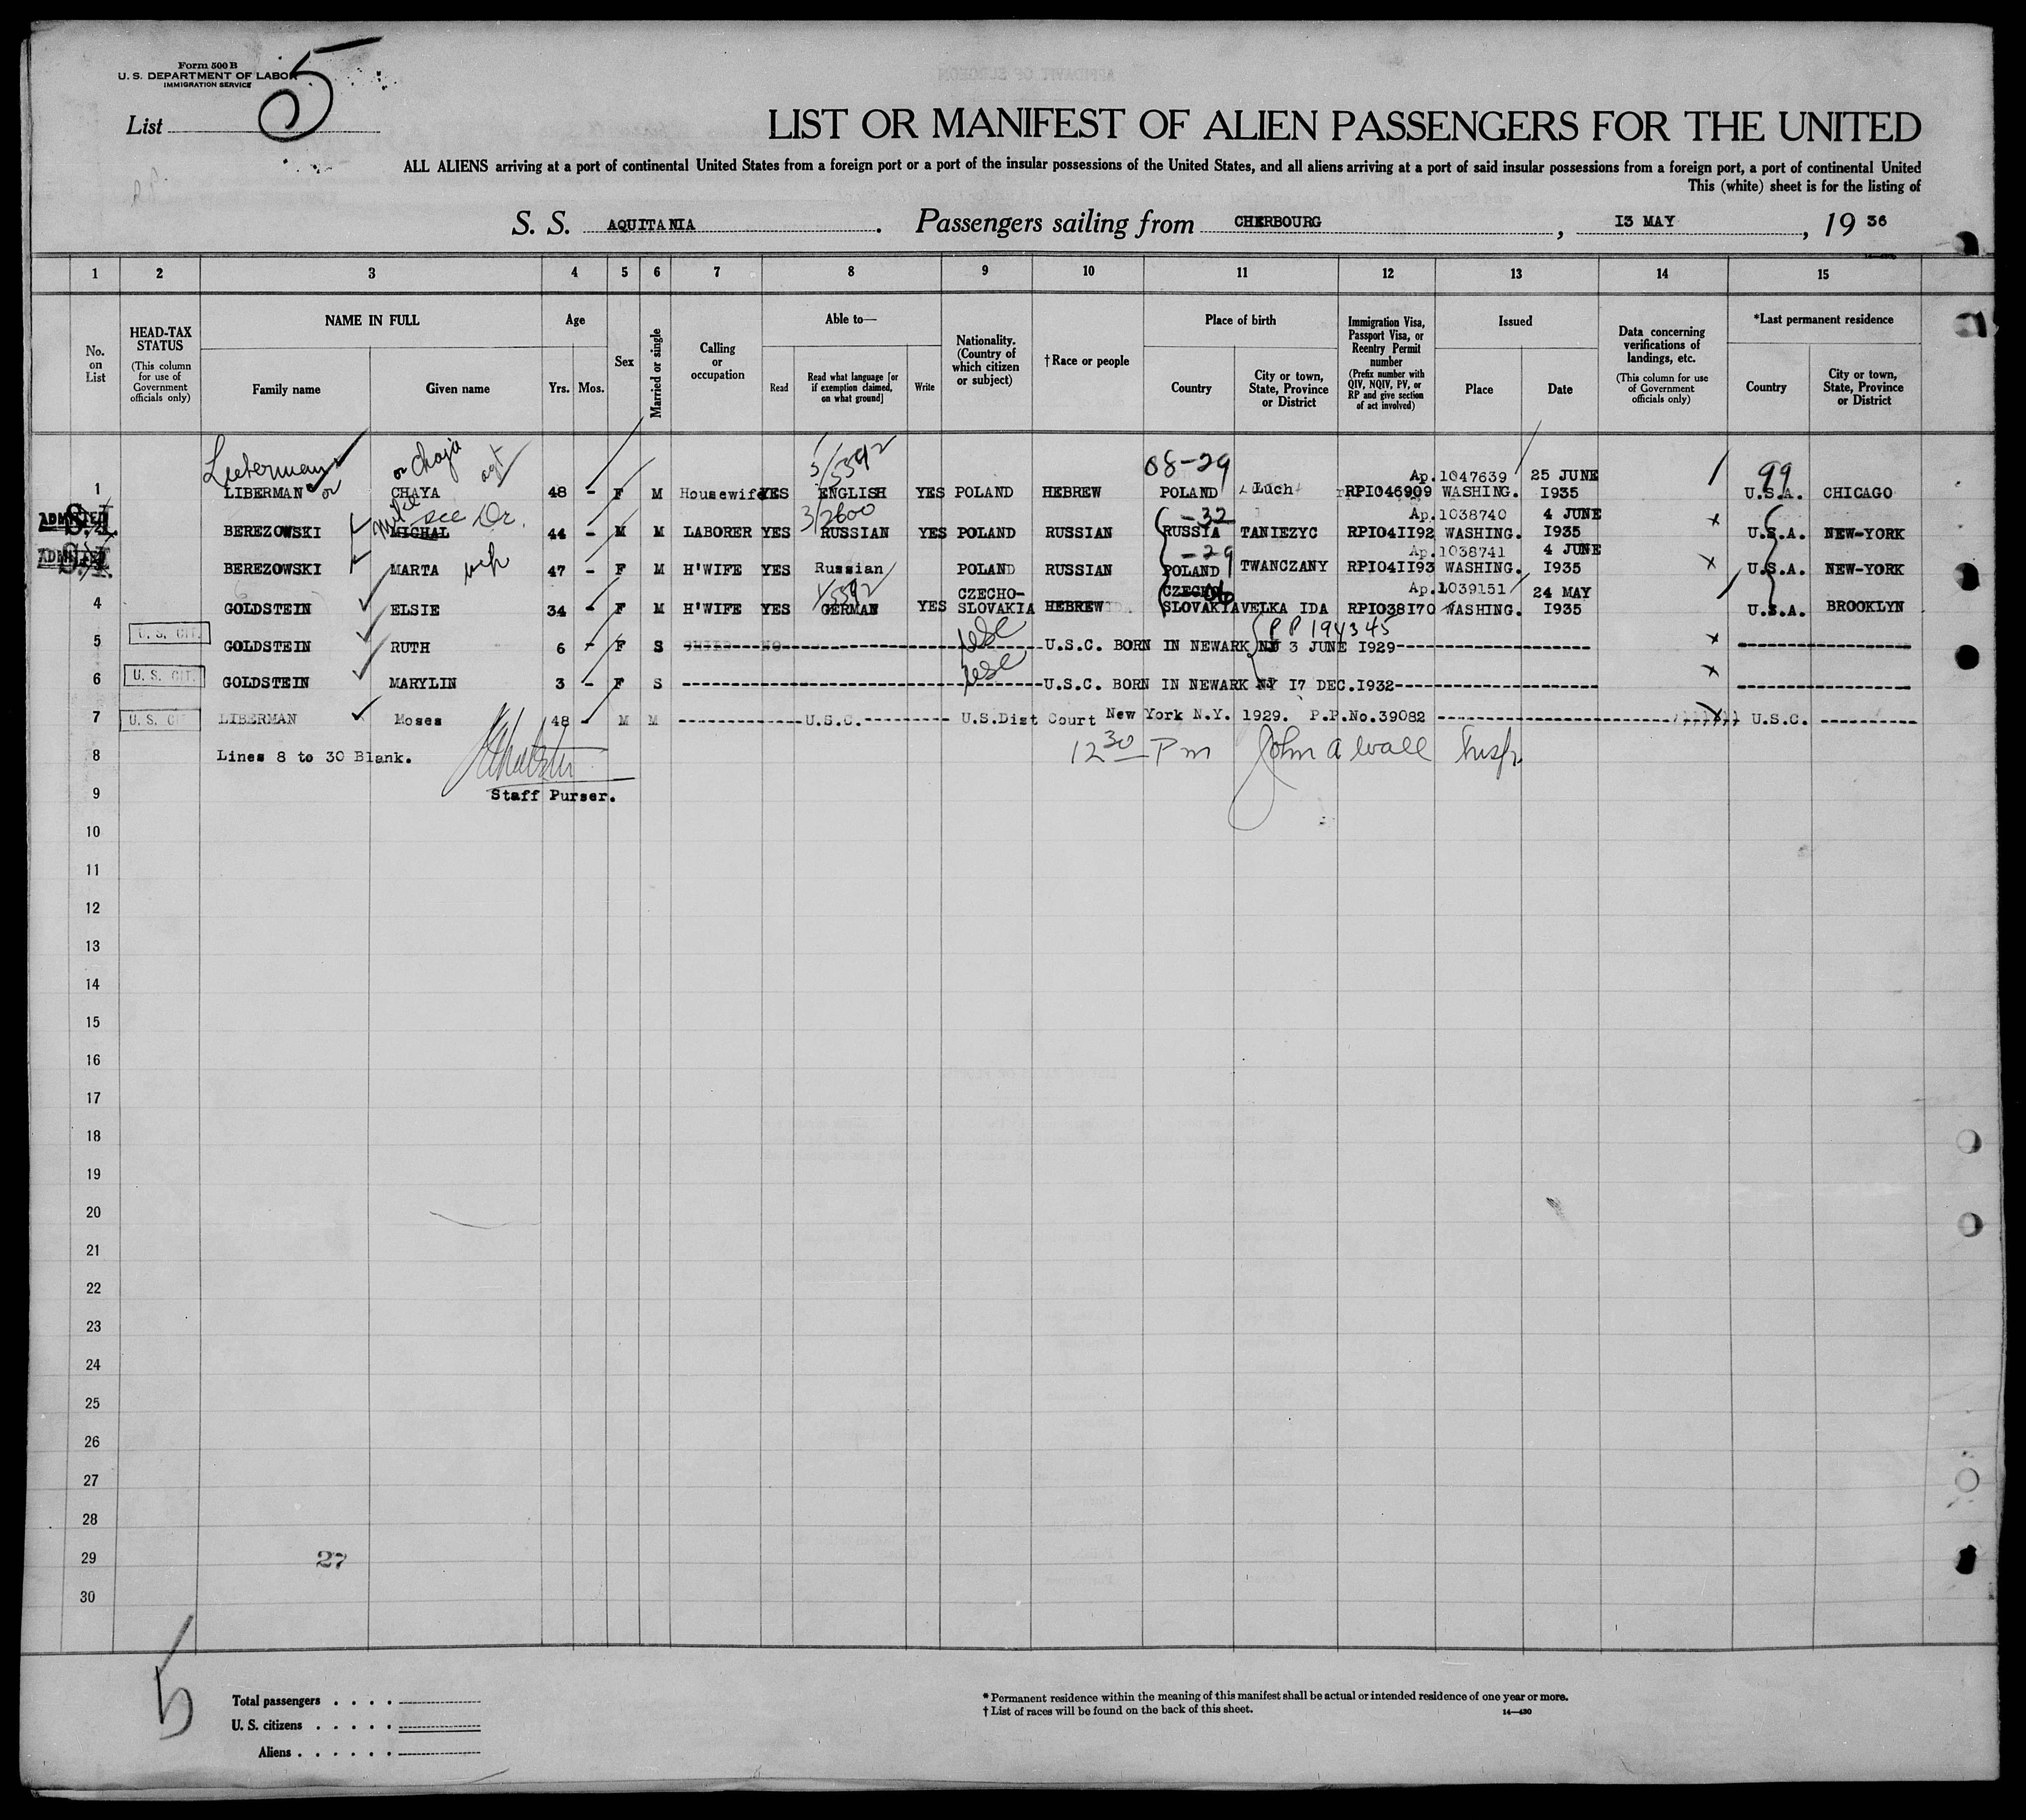 Form 500 B
U. S. DEPARTMENT OF LABOR
IMMIGRATION SERVICE
List 5
LIST OR MANIFEST OF ALIEN PASSENGERS FOR THE UNITED
ALL ALIENS arriving at a port of continental United States from a foreign port or a port of the insular possessions of the United States, and all aliens arriving at a port of said insular possessions from a foreign port, a port of continental United
This (white) sheet is for the listing of
S. S. AQUITANIA. Passengers sailing from CHERBOURG, 13 MAY, 19 36
1 2 3 4 5 6 7 8 9 10 11 12 13 14 15
No. on List
HEAD-TAX STATUS (This column for use of Government officials only)
NAME IN FULL Family name Given name
Age Yrs. Mos.
Sex
Married or single
Calling or occupation
Able to— Read Read what language [or if exemption claimed, on what ground] Write
Nationality. (Country of which citizen or subject)
† Race or people
Place of birth Country City or town, State, Province or District
Immigration Visa, Passport Visa, or Reentry Permit number (Prefix number with QIV, NQIV, PV, or RP and give section of act involved)
Issued Place Date
Data concerning verifications of landings, etc. (This column for use of Government officials only)
*Last permanent residence Country City or town, State, Province or District
Lieberman or Chaja 3/5392 08-29 Ap.1047639 25 JUNE 99
1 LIBERMAN or CHAYA 48 - F M Housewife YES ENGLISH YES POLAND HEBREW POLAND Luch RPI046909 WASHING. I935 U.S.A. CHICAGO
ADMITTED S.I. Mike see Dr. 3/2600 -32 Ap.1038740 4 JUNE
BEREZOWSKI MICHAL 44 - M M LABORER YES RUSSIAN YES POLAND RUSSIAN RUSSIA TANIEZYC RPI04II92 WASHING. I935 U.S.A. NEW-YORK
ADMITTED S.I. -29 Ap.1038741 4 JUNE
BEREZOWSKI MARTA 47 - F M H'WIFE YES Russian POLAND RUSSIAN POLAND TWANCZANY RPI04II93 WASHING. I935 U.S.A. NEW-YORK
1/5592 06 Ap.1039151 24 MAY
4 GOLDSTEIN ELSIE 34 - F M H'WIFE YES GERMAN YES CZECHO-SLOVAKIA HEBREW CZECHO SLOVAKIA VELKA IDA RPI038I70 WASHING. I935 U.S.A. BROOKLYN
P P 194345
5 U. S. CIT. GOLDSTEIN RUTH 6 - F S CHILD NO USC U.S.C. BORN IN NEWARK NJ 3 JUNE I929 x
6 U. S. CIT. GOLDSTEIN MARYLIN 3 - F S USC U.S.C. BORN IN NEWARK NJ I7 DEC.I932 x
7 U. S. CIT LIBERMAN Moses 48 - M M U.S.C. U.S.Dist Court New York N.Y. 1929. P.P.No.39082 U.S.C.
8 Lines 8 to 30 Blank. 12 30 Pm John A Wall Inspr.
9 Staff Purser.
10
11
12
13
14
15
16
17
18
19
20
21
22
23
24
25
26
27
28
29 27
30
5
Total passengers
U. S. citizens
Aliens
* Permanent residence within the meaning of this manifest shall be actual or intended residence of one year or more.
† List of races will be found on the back of this sheet. 14—430